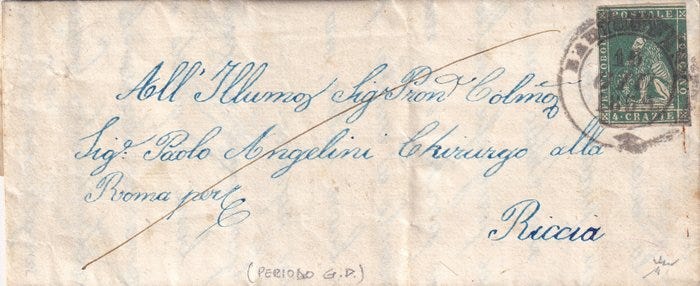 FRANCOBOLLO POSTALE TOSCANO
4 · CRAZIE
All' Illumo Sig Pron Colmo
Sigr. Paolo Angelini Chirurgo alla
Roma per
Riccia
(PERIODO G.D.)